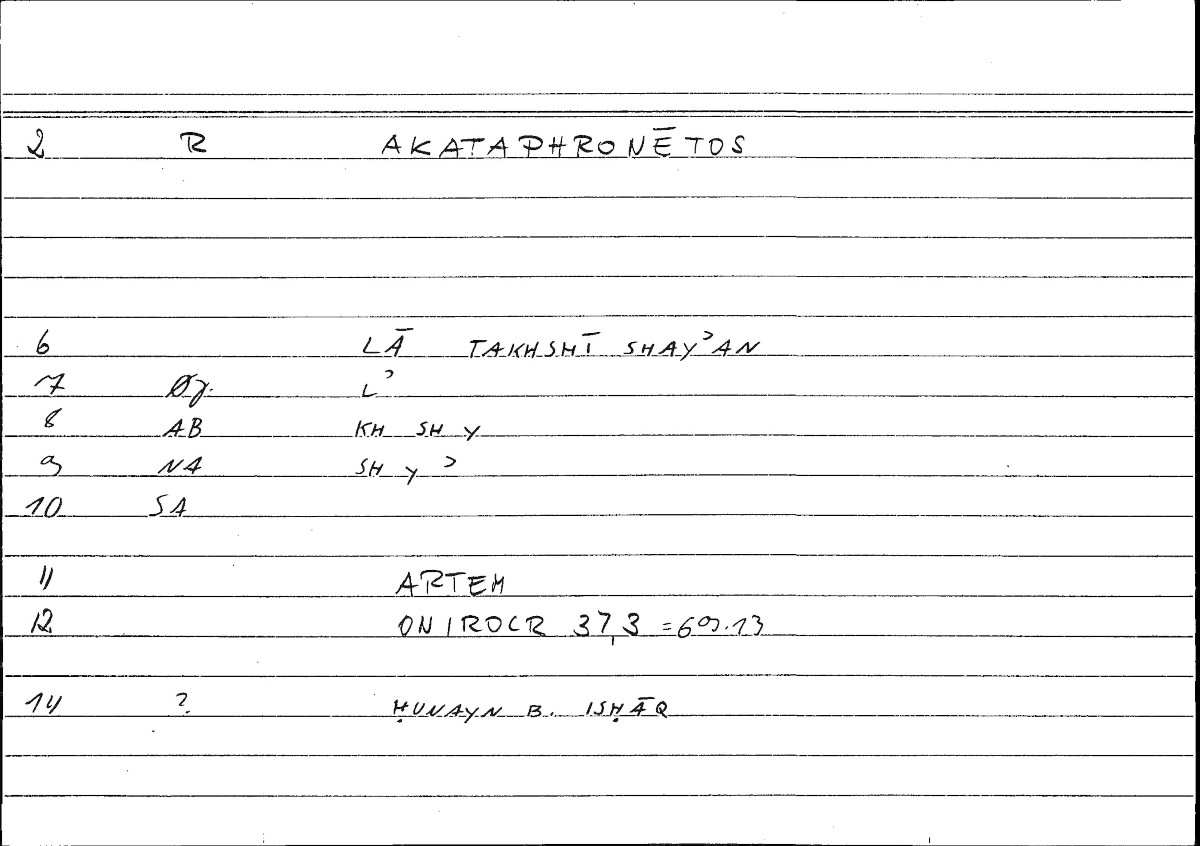 2 R AKATAPHRONĒTOS
6 LĀ TAKHSHĪ SHAYʾAN
7 Lʾ
8 AB KH SH Y
9 NA SH Y ʾ
10 SA
11 ARTEM
12 ONIROCR 37,3 =69.13
14 ? ḤUNAYN B. ISḤĀQ